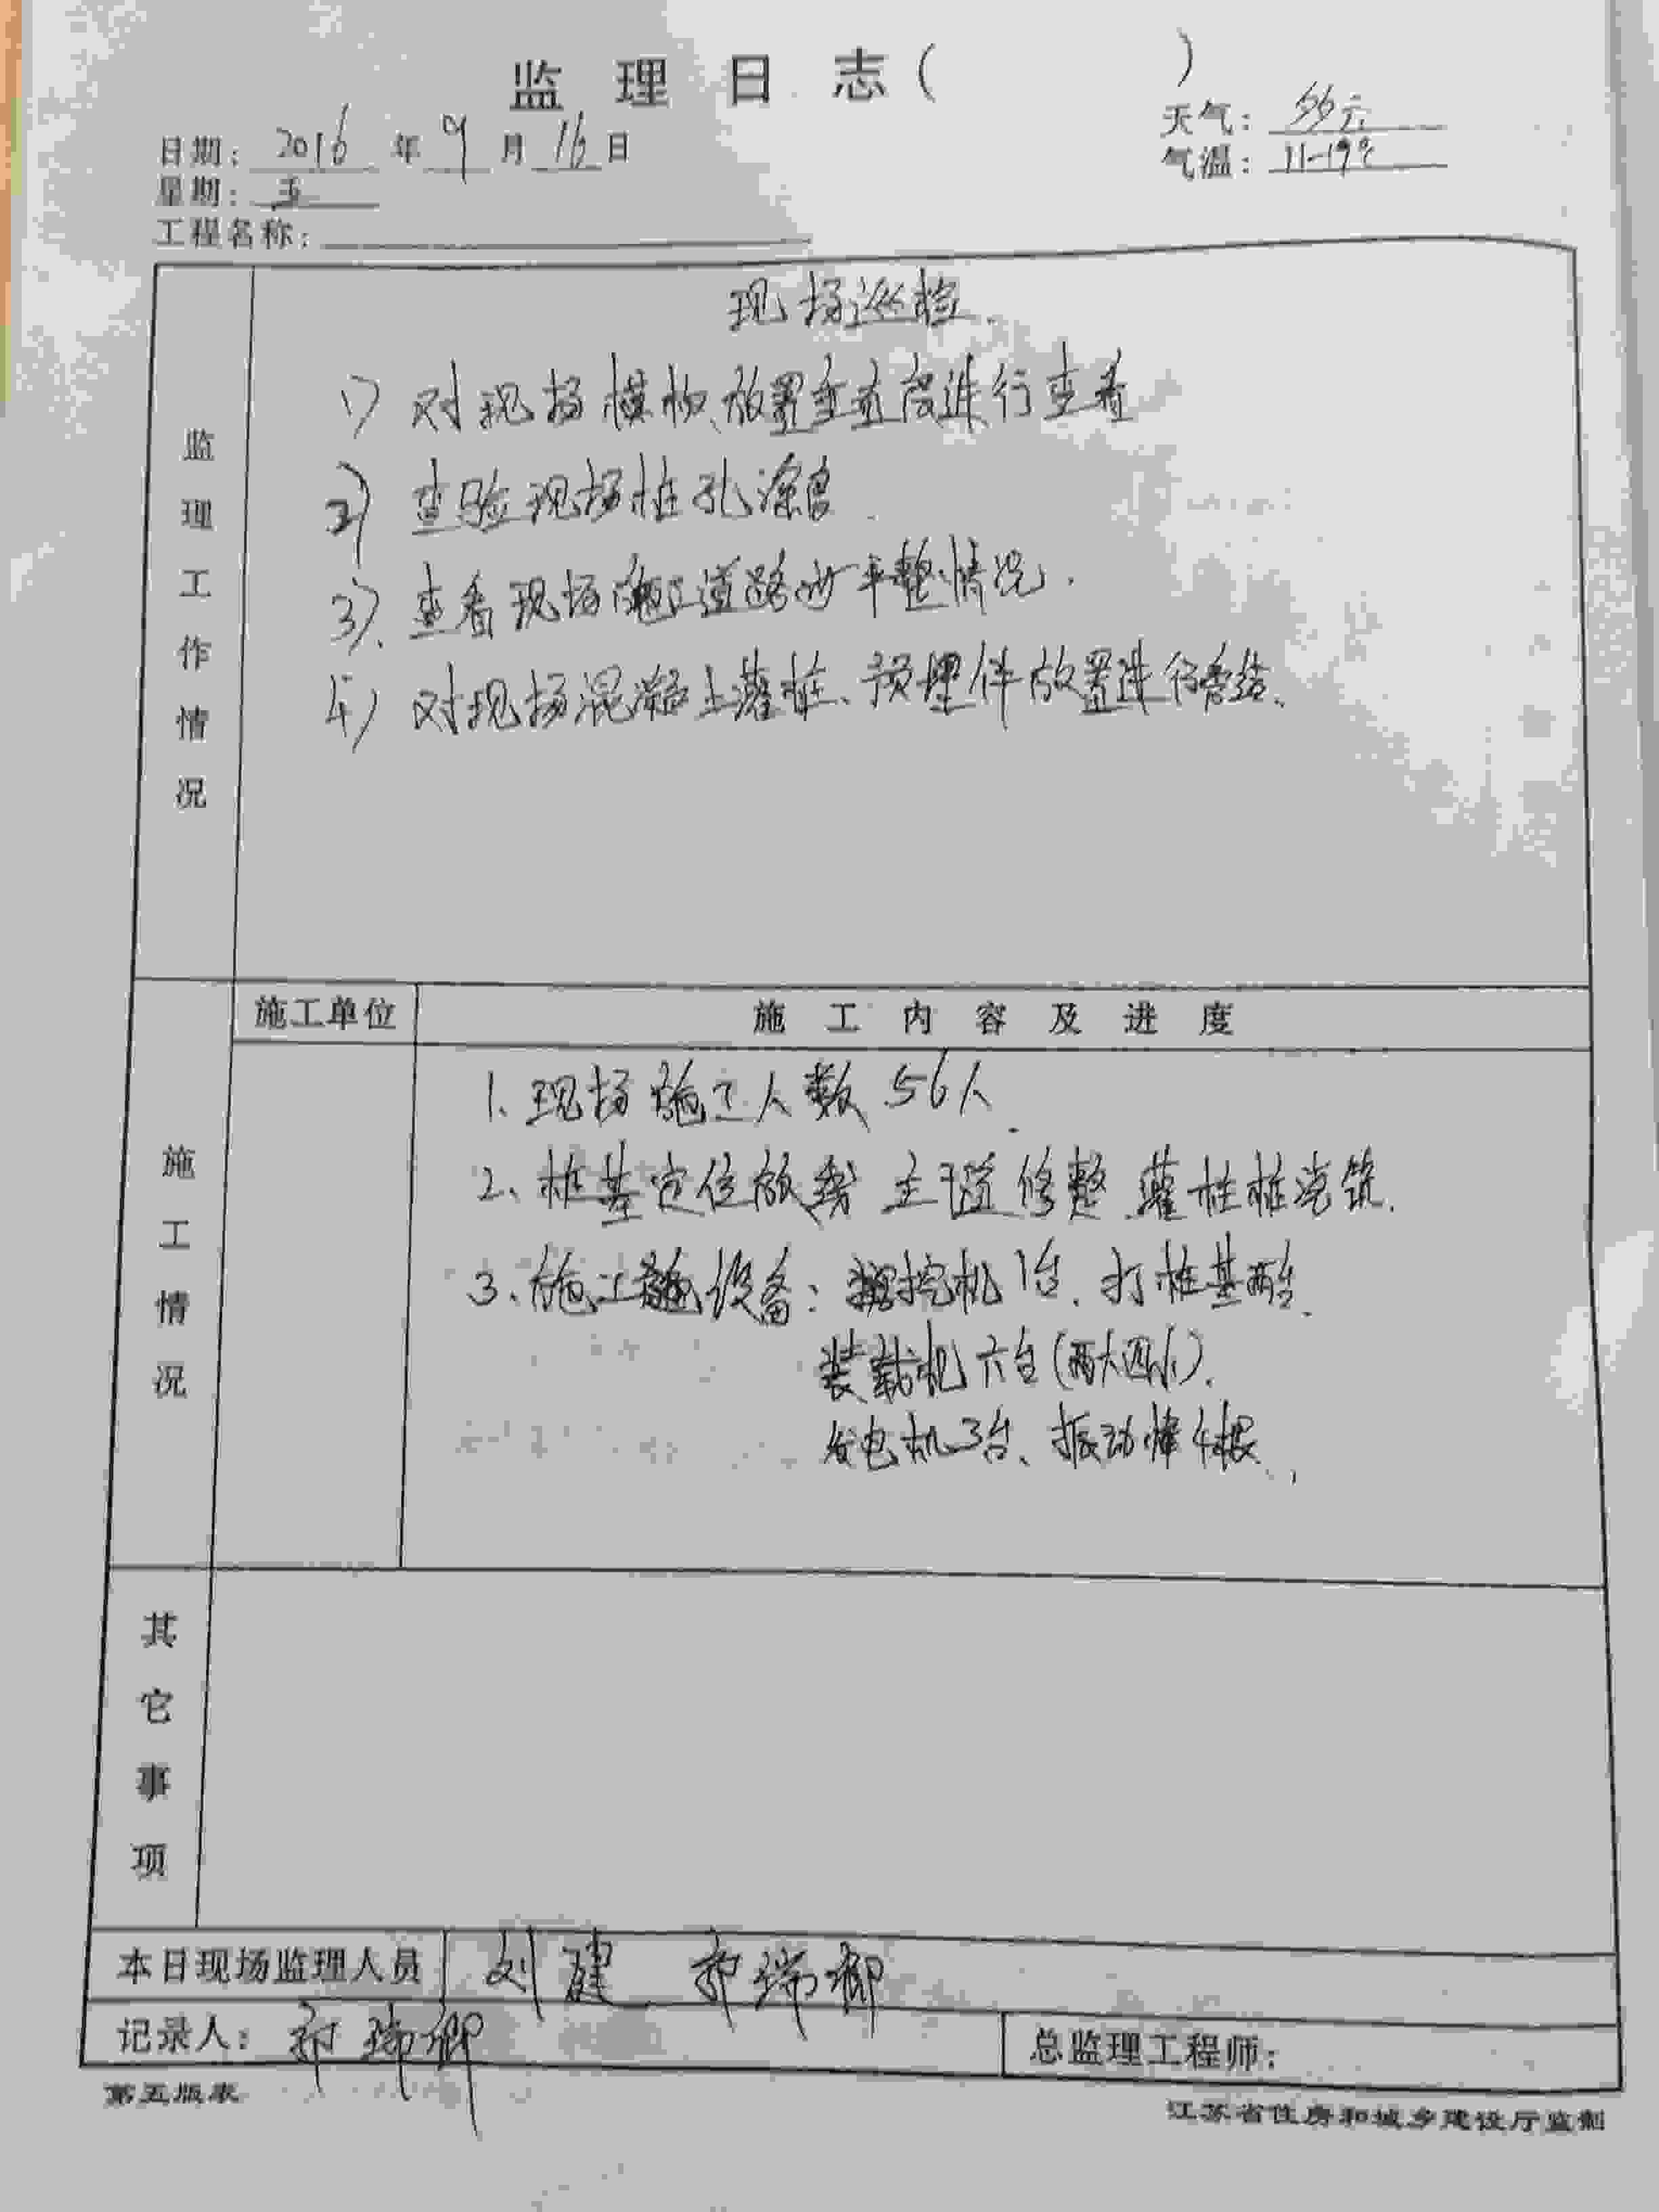 监理日志( )
日期: 2016 年 9 月 16 日
天气: 多云
星期: 五
气温: 11-19℃
工程名称:
监理工作情况
现场巡检.
1) 对现场模板放置垂直度进行查看
2) 查验现场桩孔深度.
3). 查看现场施工道路的平整情况.
4) 对现场混凝土灌桩、预埋件放置进行
施工单位
施工内容及进度
施工情况
1. 现场施工人数 56人.
2、桩基定位放线 修整 灌桩桩浇筑.
3、施工设备: 挖机1台. 打桩基两台.
装载机六台(两大四小).
发电机3台、振动棒4根.
其它事项
本日现场监理人员 刘建 瑞卿
记录人: 瑞卿
总监理工程师:
第五版表
江苏省住房和城乡建设厅监制